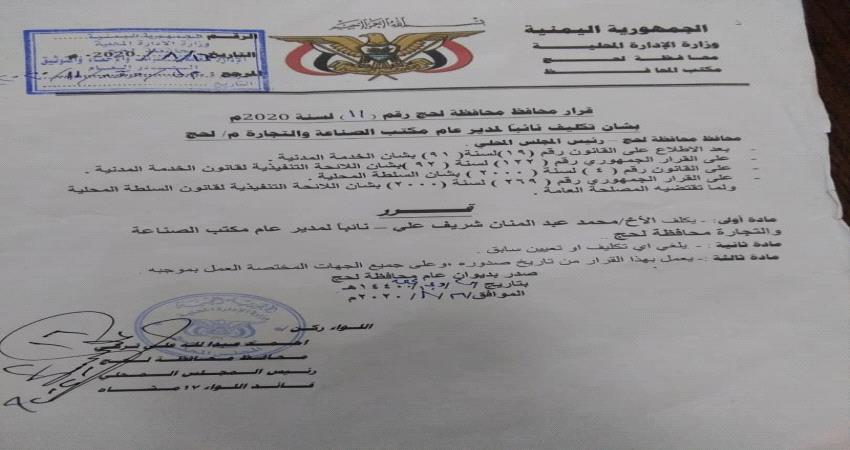 بسم الله الرحمن الرحيم
الجمهورية اليمنية
وزارة الإدارة المحلية
محافظة لحج
مكتب المحافظ
الرقم
الجمهورية اليمنية
وزارة الادارة المحلية
التاريخ
2020م
المرجع
قرار محافظ محافظة لحج رقم (١١) لسنة 2020م
بشان تكليف نائباً لمدير عام مكتب الصناعة والتجارة م/ لحج
محافظ محافظة لحج - رئيس المجلس المحلي
- بعد الاطلاع على القانون رقم (١٩) لسنة (٩١) بشان الخدمة المدنية .
- على القرار الجمهوري رقم (١٢٢) لسنة (٩٢) بشان اللائحة التنفيذية لقانون الخدمة المدنية .
- على القانون رقم (٤) لسنة (٢٠٠٠) بشان السلطة المحلية .
- على القرار الجمهوري رقم (٢٦٩) لسنة (٢٠٠٠) بشان اللائحة التنفيذية لقانون السلطة المحلية
ولما تقتضيه المصلحة العامة .
قــــرر
مادة أولى :- يكلف الأخ/ محمد عبد المنان شريف علي – نائباً لمدير عام مكتب الصناعة
والتجارة محافظة لحج .
مادة ثانية :- يلغى اي تكليف او تعيين سابق .
مادة ثالثة :- يعمل بهذا القرار من تاريخ صدوره ، وعلى جميع الجهات المختصة العمل بموجبه .
صدر بديوان عام محافظة لحج
بتاريخ
١٤٤٠هـ
الموافق
٢٠٢٠م
اللواء ركن/
احمد عبدالله علي تركي
محافظ محافظة لحج
رئيس المجلس المحلي
قائد اللواء ١٧ مشاه